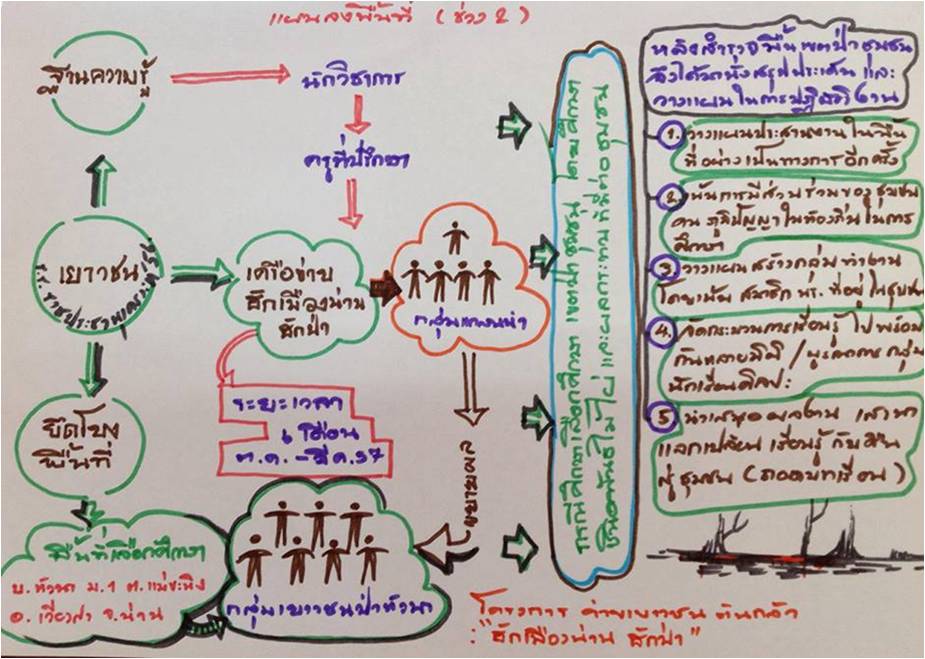 แผนลงพื้นที่ (ช่วง 2)
ฐานความรู้
นักวิชาการ
ครูที่ปรึกษา
เยาวชน
ร.ร. ราชประชานุเคราะห์
เครือข่าย
ฮักเมืองน่าน
ฮักป่า
กลุ่มแกนนำ
ระยะเวลา
6 เดือน
ต.ค. - มี.ค. 57
ขยายผล
ยึดโยง
พื้นที่
พื้นที่เลือกศึกษา
บ. หัวนา ม. 1 ต. แม่ขะนิง
อ. เวียงสา จ. น่าน
กลุ่มเยาวชนป่าหัวนา
กรณีศึกษาเลือกศึกษา เขตป่าชุมชน โดยศึกษา
ชนิดพันธุ์ไม้ไผ่ และผลกระทบ ที่มีต่อชุมชน
หลังสำรวจพื้นเขตป่าชุมชน
จึงได้มานั่งสรุปประเด็น และ
วางแผนในการปฏิบัติงาน
1. วางแผนประสานงานในพื้น
ที่อย่างเป็นทางการอีกครั้ง
2. เน้นการมีส่วนร่วมของชุมชน
คน ภูมิปัญญาในท้องถิ่นในการ
ศึกษา
3. วางแผนสร้างกลุ่มทำงาน
โดยเน้น สมาชิก นร. ที่อยู่ในชุมชน
4. จัดกระบวนการเรียนรู้ ไปพร้อม
กันหลายมิติ / บูรณาการ กลุ่ม
นักเรียนศิลปะ
5 นำเสนอผลงาน เสวนา
แลกเปลี่ยน เรียนรู้ กับคืน
สู่ชุมชน (ถอดบทเรียน)
โครงการ ค่ายเยาวชน ต้นกล้า
: "ฮักเมืองน่าน ฮักป่า"